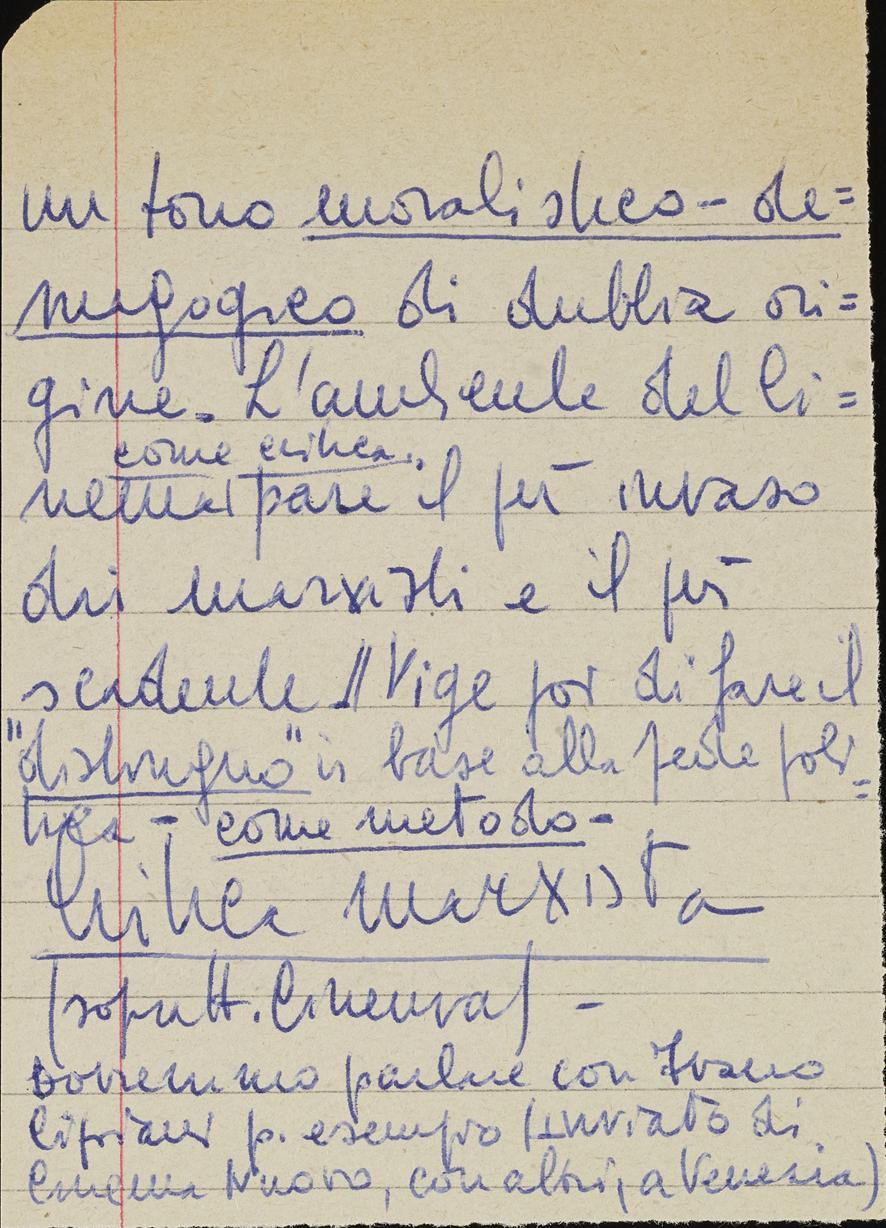 un tono moralistico-de=
magogico di dubbia ori=
gine. L'ambiente del ci=
come critica.
nema pare il più invaso
dai marxisti e il più
scadente // Vige poi di fare il
"distinguo" in base alla fede poli=
tica - come metodo-
Critica marxista
(sopratt. Cinema) -
Dovremmo parlare con Ivano
Cipriani p. esempio (inviato di
Cinema Nuovo, con altri, a Venezia)